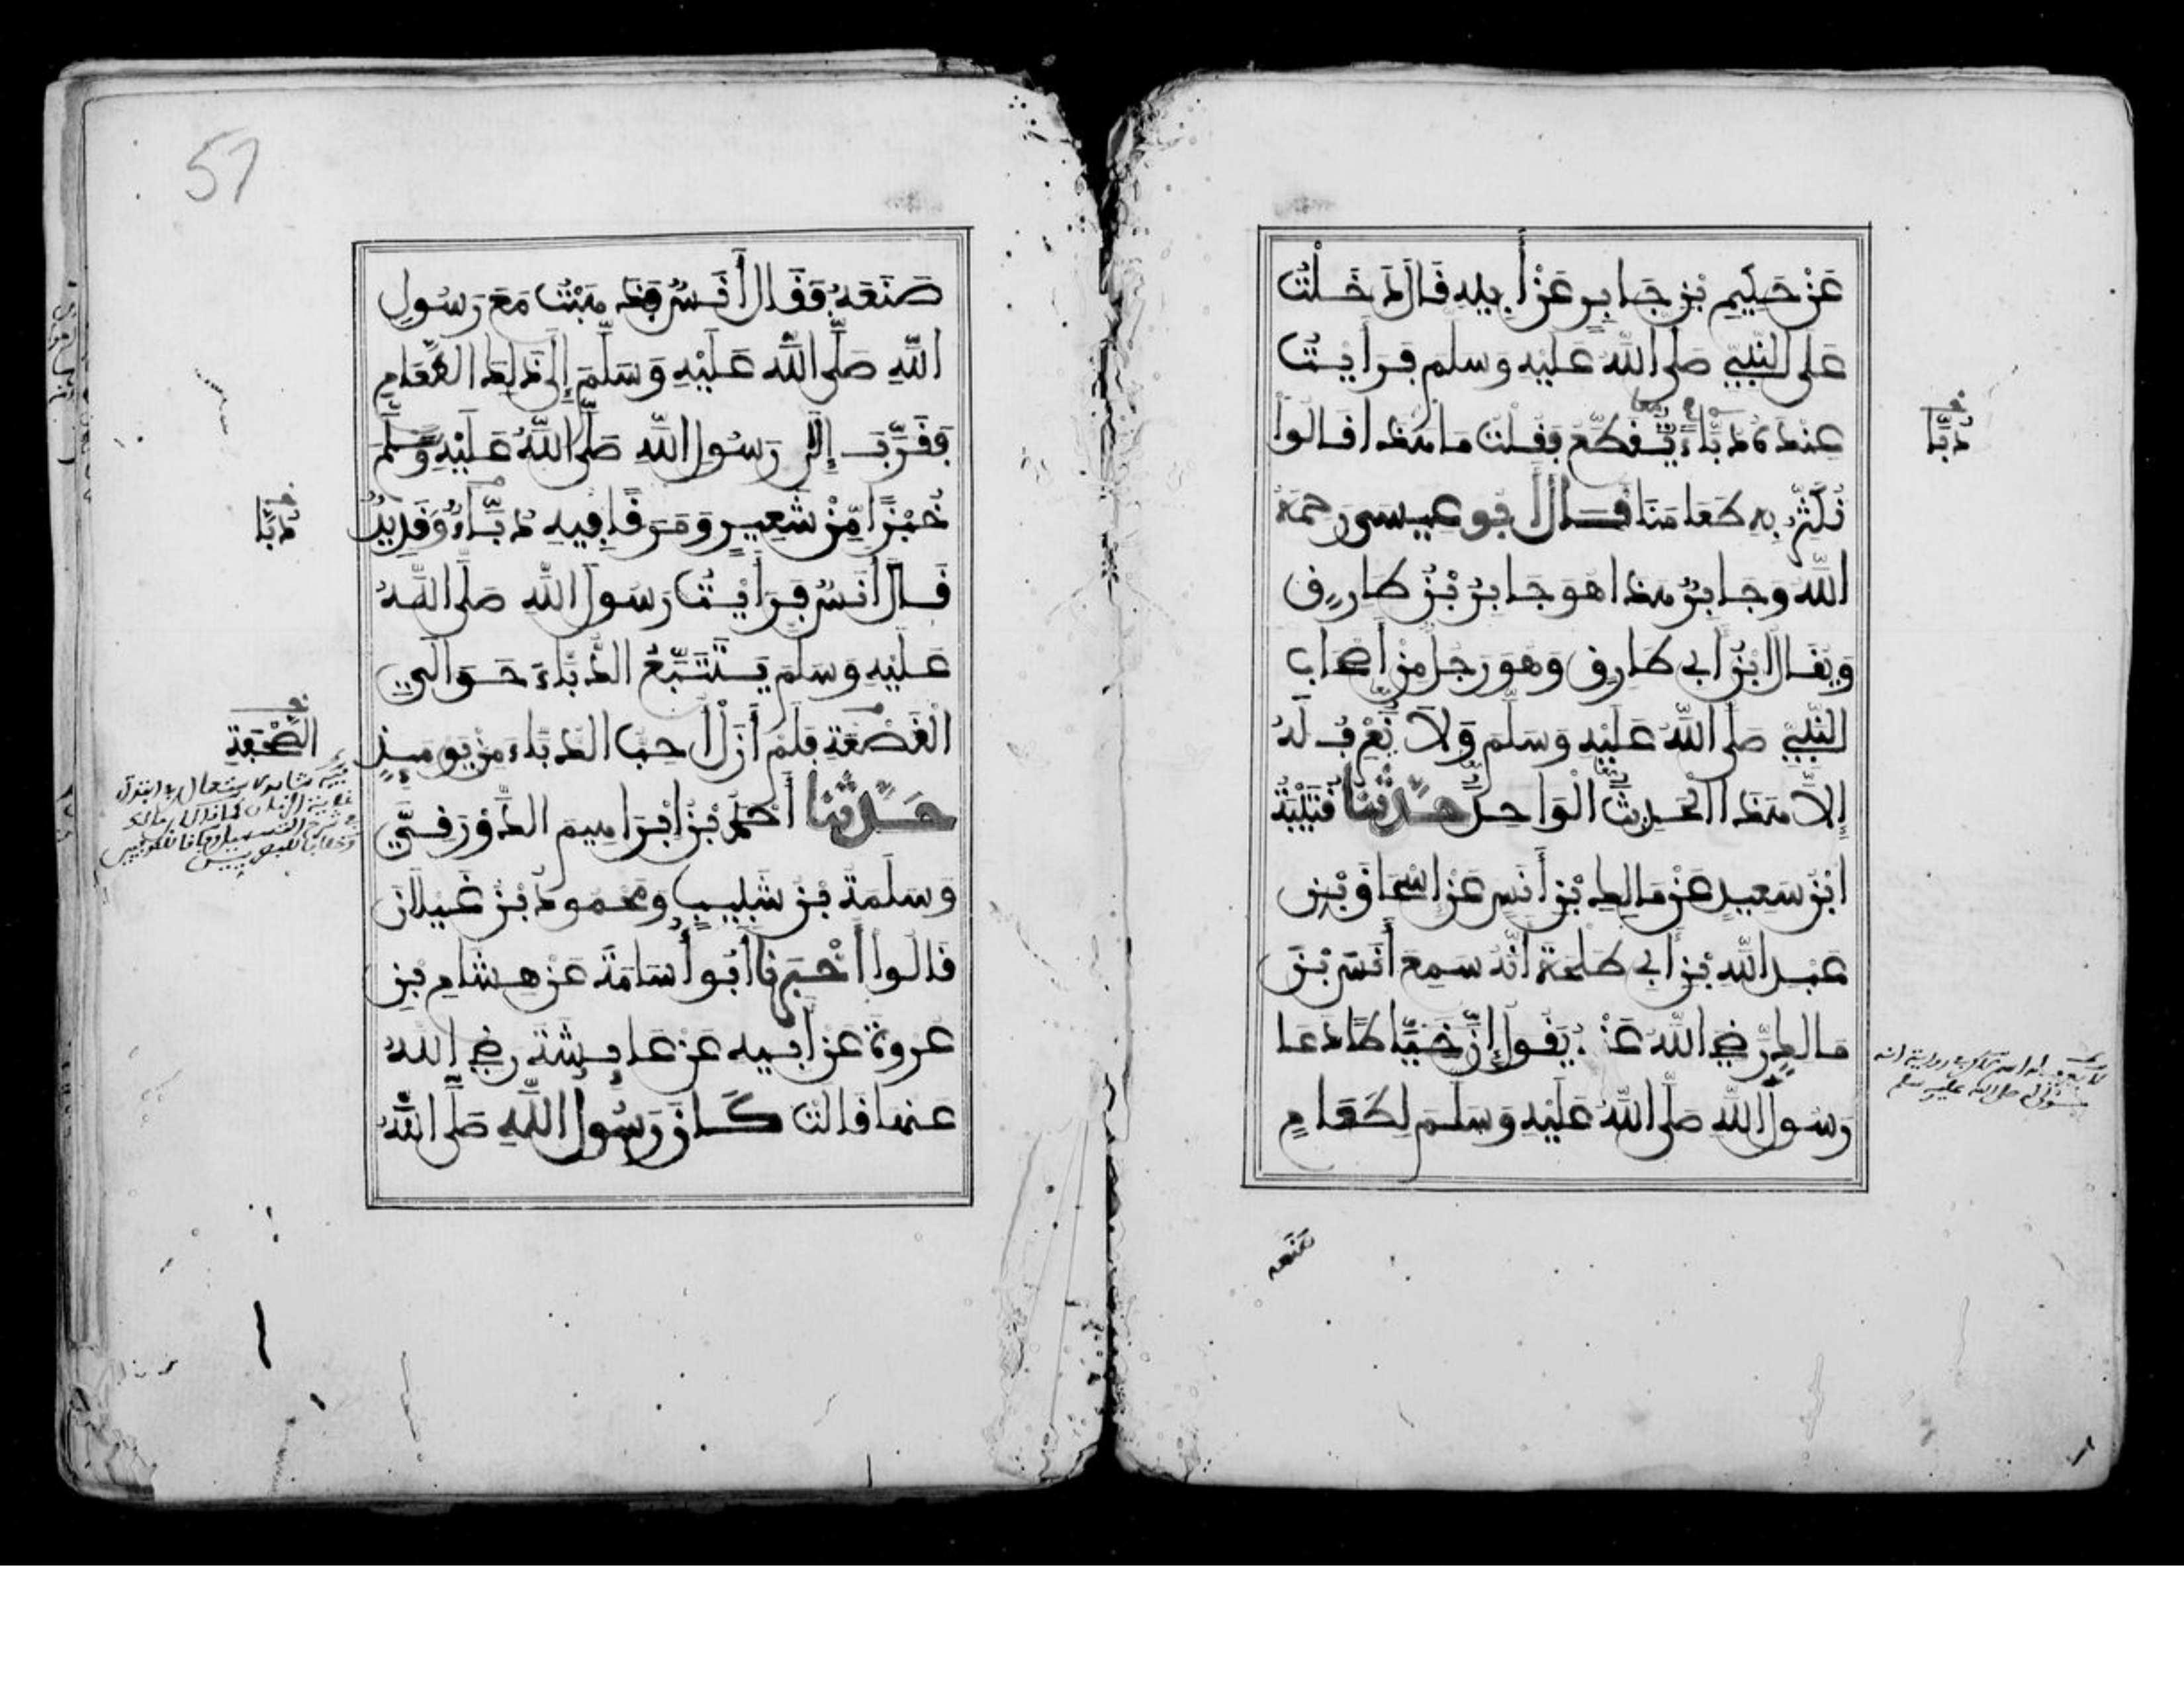 عَنْ حَكِيمِ بْنِ جَابِرٍ عَنْ أَبِيهِ قَالَ دَخَلْتُ
عَلَى النَّبِيِّ صَلَّى اللَّهُ عَلَيْهِ وَسَلَّمَ فَرَأَيْتُ
عِنْدَهُ دُبَّاءً يُقَطِّعُ فَقُلْتُ مَا هَذَا قَالُوا
نُكَثِّرُ بِهِ طَعَامَنَا قَالَ أَبُو عِيسَى رَحِمَهُ
اللَّهُ وَجَابِرٌ هَذَا هُوَ جَابِرُ بْنُ طَارِقٍ
وَيُقَالُ ابْنُ أَبِي طَارِقٍ وَهُوَ رَجُلٌ مِنْ أَصْحَابِ
النَّبِيِّ صَلَّى اللَّهُ عَلَيْهِ وَسَلَّمَ وَلَا نَعْرِفُ لَهُ
إِلَّا هَذَا الْحَدِيثَ الْوَاحِدَ حَدَّثَنَا قُتَيْبَةُ
ابْنُ سَعِيدٍ عَنْ مَالِكِ بْنِ أَنَسٍ عَنْ إِسْحَاقَ بْنِ
عَبْدِ اللَّهِ بْنِ أَبِي طَلْحَةَ أَنَّهُ سَمِعَ أَنَسَ بْنَ
مَالِكٍ رَضِيَ اللَّهُ عَنْهُ يَقُولُ إِنَّ خَيَّاطًا دَعَا
رَسُولَ اللَّهِ صَلَّى اللَّهُ عَلَيْهِ وَسَلَّمَ لِطَعَامٍ
دُبَّا
صَنَعَهُ
57
صَنَعَهُ فَقَالَ أَنَسٌ فَذَهَبْتُ مَعَ رَسُولِ
اللَّهِ صَلَّى اللَّهُ عَلَيْهِ وَسَلَّمَ إِلَى ذَلِكَ الطَّعَامِ
فَقَرَّبَ إِلَى رَسُولِ اللَّهِ صَلَّى اللَّهُ عَلَيْهِ وَسَلَّمَ
خُبْزًا مِنْ شَعِيرٍ وَمَرَقًا فِيهِ دُبَّاءٌ وَقَدِيدٌ
قَالَ أَنَسٌ فَرَأَيْتُ رَسُولَ اللَّهِ صَلَّى اللَّهُ
عَلَيْهِ وَسَلَّمَ يَتَتَبَّعُ الدُّبَّاءَ حَوَالَيِ
الْقَصْعَةِ فَلَمْ أَزَلْ أُحِبُّ الدُّبَّاءَ مِنْ يَوْمِئِذٍ
حَدَّثَنَا أَحْمَدُ بْنُ إِبْرَاهِيمَ الدَّوْرَقِيُّ
وَسَلَمَةُ بْنُ شَبِيبٍ وَمَحْمُودُ بْنُ غَيْلَانَ
قَالُوا أَخْبَرَنَا أَبُو أُسَامَةَ عَنْ هِشَامِ بْنِ
عُرْوَةَ عَنْ أَبِيهِ عَنْ عَائِشَةَ رَضِيَ اللَّهُ
عَنْهَا قَالَتْ كَانَ رَسُولُ اللَّهِ صَلَّى اللَّهُ
دُبَّا
الصَّحْفَةِ